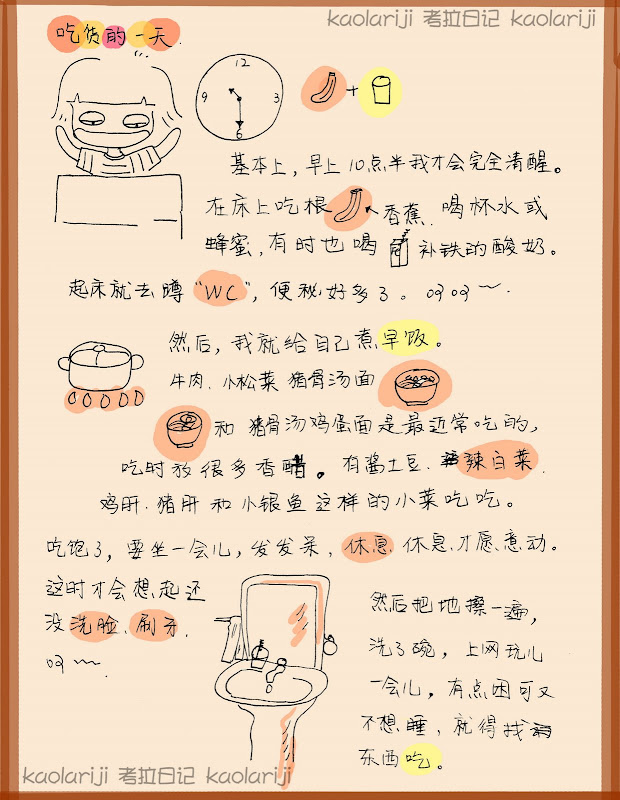 kaolariji 考拉日记 kaolariji
吃货的一天.
12
9 3
6
+
基本上,早上10点半我才会完全清醒。
在床上吃根 香蕉. 喝杯水或
蜂蜜,有时也喝 补铁的酸奶。
起床就去蹲"WC",便秘好多了。呵呵~.
然后,我就给自己煮早饭。
牛肉、小松菜 猪骨汤面
和 猪骨汤鸡蛋面是最近常吃的,
吃时放很多香醋。有酱土豆、辣白菜、
鸡肝.猪肝和小银鱼这样的小菜吃吃。
吃饱了,要坐一会儿,发发呆,休息 休息.才愿意动。
这时才会想起还
没洗脸、刷牙.
呵~.
然后把地擦一遍,
洗了碗,上网玩儿
一会儿,有点困可又
不想睡,就得找
东西吃。
kaolariji 考拉日记 kaolariji